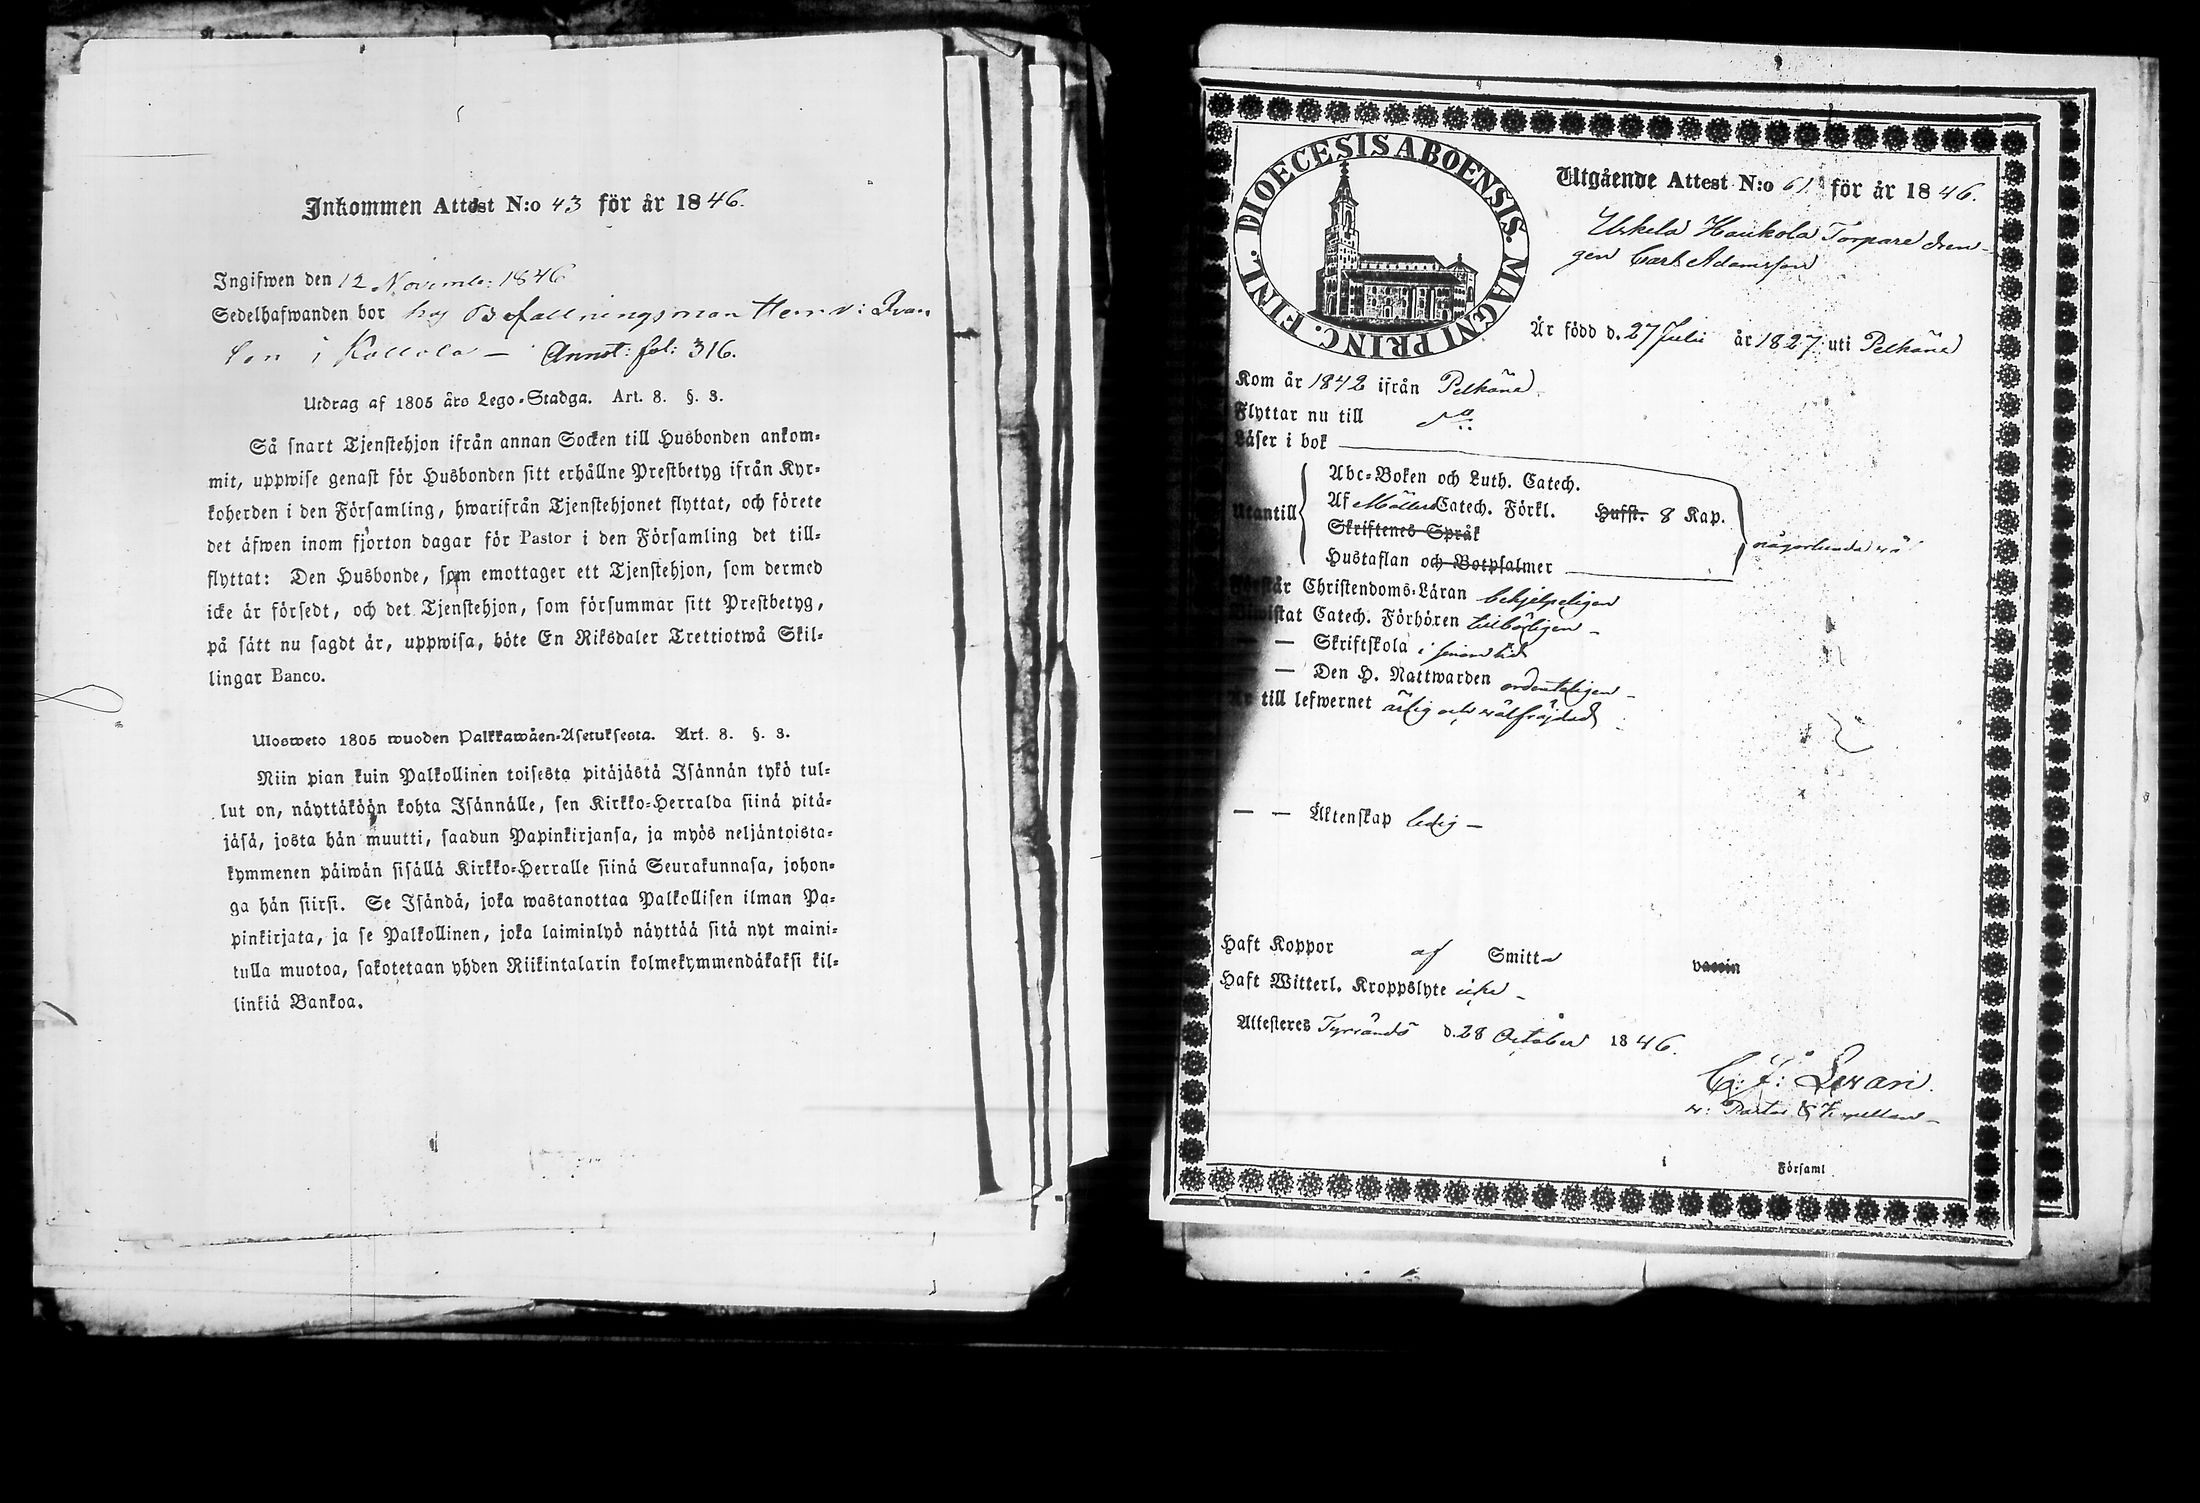 Inkommen Attest N:o 43 för år 1846.
Ingifwen den 12 Novemb: 1846
Sedelhafwanden bor hos Befallningsman Herr v: Qvan
ten i Kollola — Annot: fol: 316.
Utdrag af 1805 års Lego-Stadga. Art. 8. §. 3.
Så snart Tjenstehjon ifrån annan Socken till Husbonden ankom-
mit, uppwise genast för Husbonden sitt erhållne Prestbetyg ifrån Kyr-
koherden i den Församling, hwarifrån Tjenstehjonet flyttat, och förete
det äfwen inom fjorton dagar för Pastor i den Församling det till-
flyttat: Den Husbonde, som emottager ett Tjenstehjon, som dermed
icke är försedt, och det Tjenstehjon, som försummar sitt Prestbetyg,
på sätt nu sagdt är, uppwisa, böte En Riksdaler Trettiotwå Skil-
lingar Banco.
Ulosweto 1805 wuoden Palkkawäen-Asetuksesta. Art. 8. §. 3.
Niin pian kuin Palkollinen toisesta pitäjästä Isännän tykö tul-
lut on, näyttäköön kohta Isännälle, sen Kirkko-Herralda siinä pitä-
jäsä, josta hän muutti, saadun Papinkirjansa, ja myös neljäntoista-
kymmenen päiwän sisällä Kirkko-Herralle siinä Seurakunnasa, johon-
ga hän siirsi. Se Isändä, joka wastanottaa Palkollisen ilman Pa-
pinkirjata, ja se Palkollinen, joka laiminlyö näyttää sitä nyt maini-
tulla muotoa, sakotetaan yhden Riikintalarin kolmekymmendäkaksi kil-
linkiä Bankoa.
FINL. DIOECESIS ABOENSIS. MAGNI PRINC.
Utgående Attest N:o 61 för år 1846.
Urkela Haukola Torpare dren-
gen Carl Adamsson
Är född d. 27 Julii år 1827 uti Pelkäne
Kom år 1842 ifrån Pelkäne
Flyttar nu till do:
Läser i bok
Utantill
Abc-Boken och Luth. Catech.
Af Möllers Catech. Förkl. Husst. 8 Kap.
Skriftenes Språk
Hustaflan och Botpsalmer
någorlunda
Förstår Christendoms-Läran behjelpeligen
Biwistat Catech. Förhören tillbörligen —
— — Skriftskola i sinom tid
— Den H. Nattwarden ordenteligen —
Är till lefwernet ärlig och välfräjdad
— — Äktenskap ledig —
Haft Koppor af Smitta vaccin
Haft Witterl. Kroppslyte icke —
Attesteres Tyrvändö d. 28 October 1846.
C: F: Levan
v: Pastor & Kapellan —
i Församl